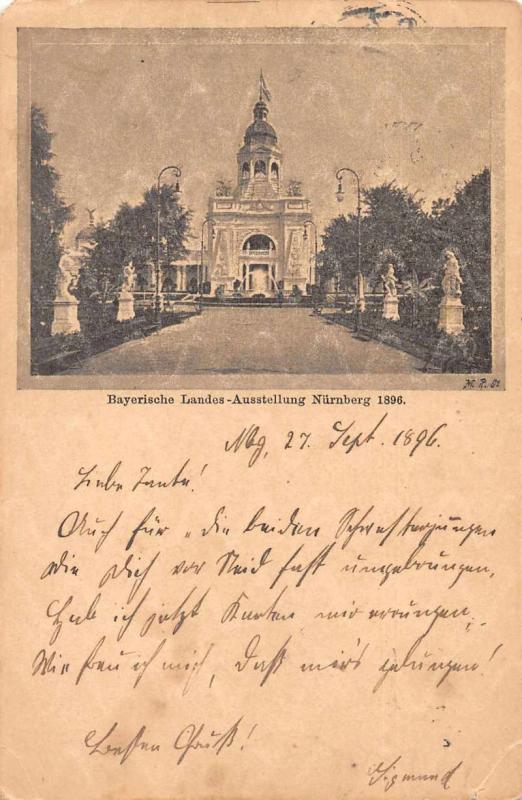 Bayerische Landes-Ausstellung Nürnberg 1896.
Nbg, 27. Sept. 1896.
Liebe Tante!
Auch für „die beiden Schwesterjungen
die Dich vor Neid fast umgebrungen,
Hab ich jetzt Karten mir errungen
Wie freu ich mich, daß mir's gelungen!
Besten Gruß!
Sigmund